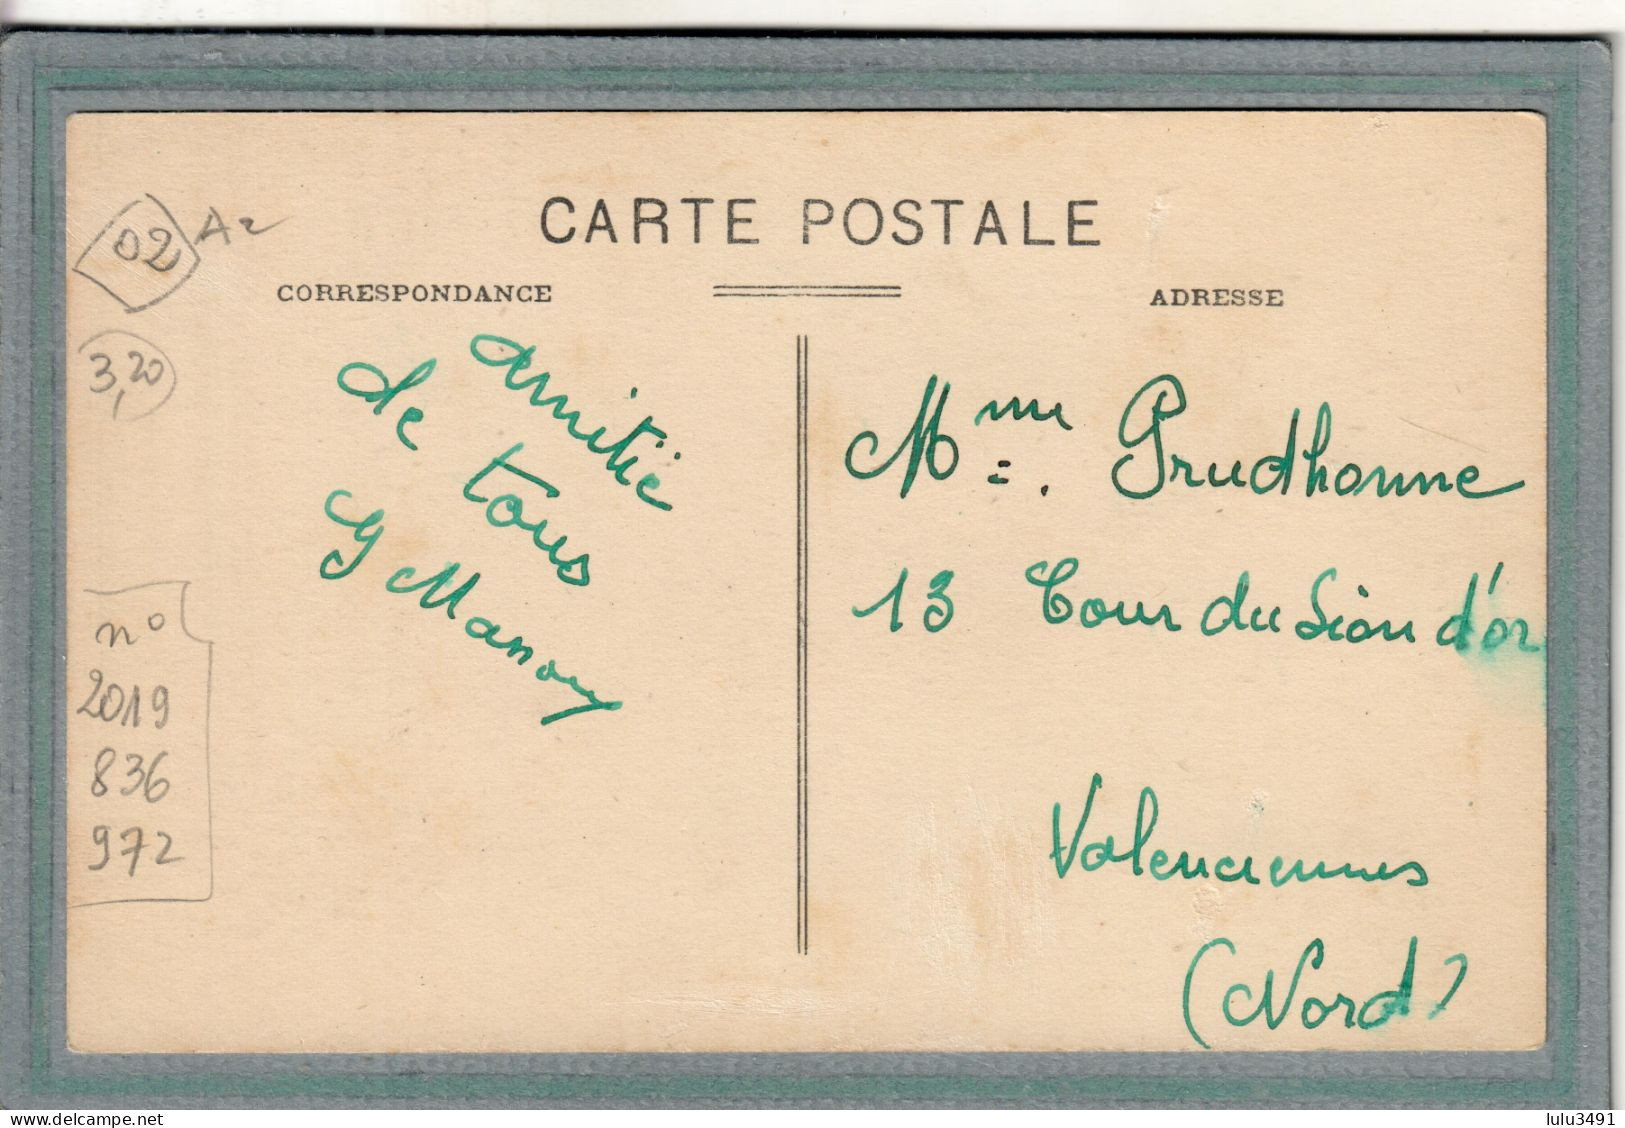 CARTE POSTALE
CORRESPONDANCE
ADRESSE
02
A2
3,20
n°
2019
836
972
amitié
de tous
G Manouy
Mme. Prudhomme
13 Cour du Lion d'or
Valenciennes
(Nord)
www.delcampe.net
lulu3491